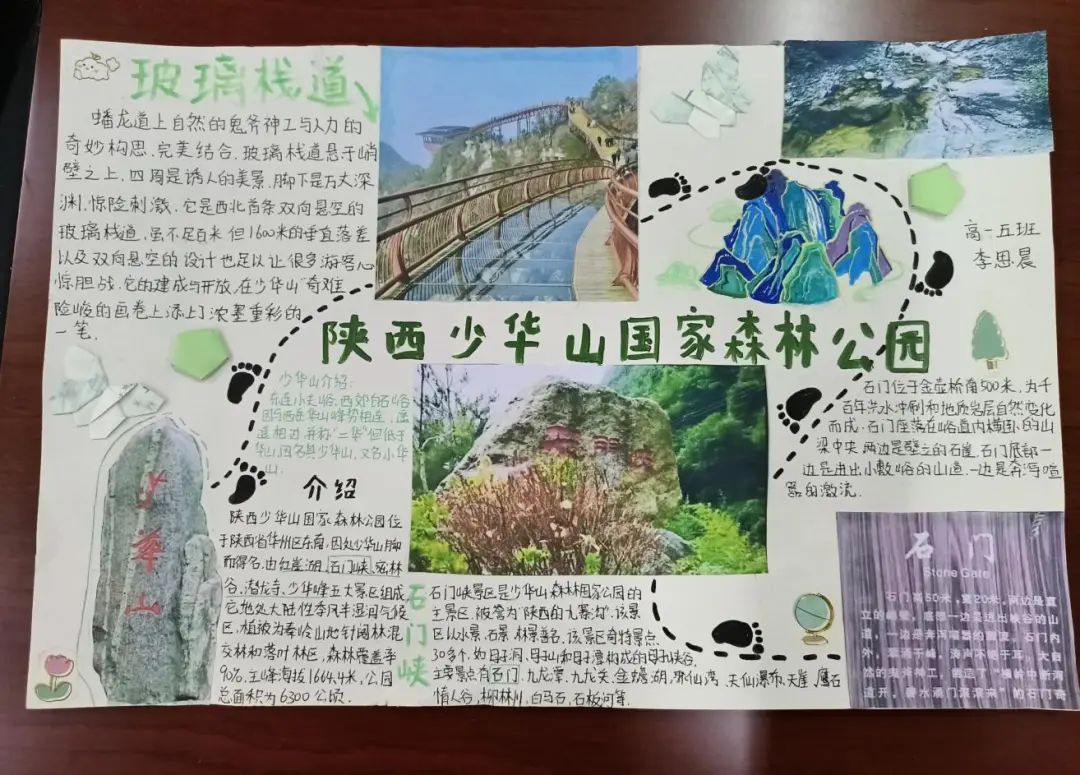 玻璃栈道
蟠龙道上自然的鬼斧神工与人力的
奇妙构思、完美结合、玻璃栈道悬于峭
壁之上、四周是诱人的美景、脚下是万丈深
渊、惊险刺激、它是西北首条双向悬空的
玻璃栈道、虽不足百米但1600米的垂直落差
以及双向悬空的设计也足以让很多游客心
惊胆战、它的建成与开放、在少华山“奇难
险峻的画卷上添上了浓墨重彩的
一笔.
高一五班
李思晨
陕西少华山国家森林公园
少华山介绍:
东连小夫峪、西邻白石峪
因与西岳华山峰势相连、遥
遥相对、并称“二华”但低于
华山、因名其少华山、又名小华
山.
介绍
陕西少华山国家森林公园位
于陕西省华州区东南、因处少华山脚
而得名、由红崖湖、石门峡、密林
谷、潜龙寺、少华峰五大景区组成
它地处大陆性季风半湿润气候
区、植被为秦岭山地针阔林混
交林和落叶林区、森林覆盖率
90%、主峰海拔1664.4米、公园
总面积为6300公顷.
少华山
石门峡
石门峡景区是少华山森林国家公园的
主景区、被誉为“陕西的九寨沟”.该景
区以水景、石景、林景著名、该景区奇特景点
30多个、如母子洞、母子山和母子潭构成的母子峡谷、
主要景点有石门、九龙潭、九龙关、金蟾湖、邢仙湾、天仙瀑布、天崖、鹰石
情人谷、柳林州、白马石、石板河等.
石门位于金壶桥南500米、为千
百年洪水冲刷和地质岩层自然变化
而成、石门座落在峪道内横卧的山
梁中央、两边是壁立的石崖、石门底部一
边是进出小敷峪的山道、一边是奔泻喧
嚣的激流.
石门
Stone Gate
石门高50米，宽20米。两边是直
立的崖壁，底部一边是进出峡谷的山
道，一边是奔泻喧嚣的激流。石门内
外，翠涌千峰，涛声不绝于耳，大自
然的鬼斧神工，营造了“横岭中断河
道开，碧水涌门滚滚来”的石门奇